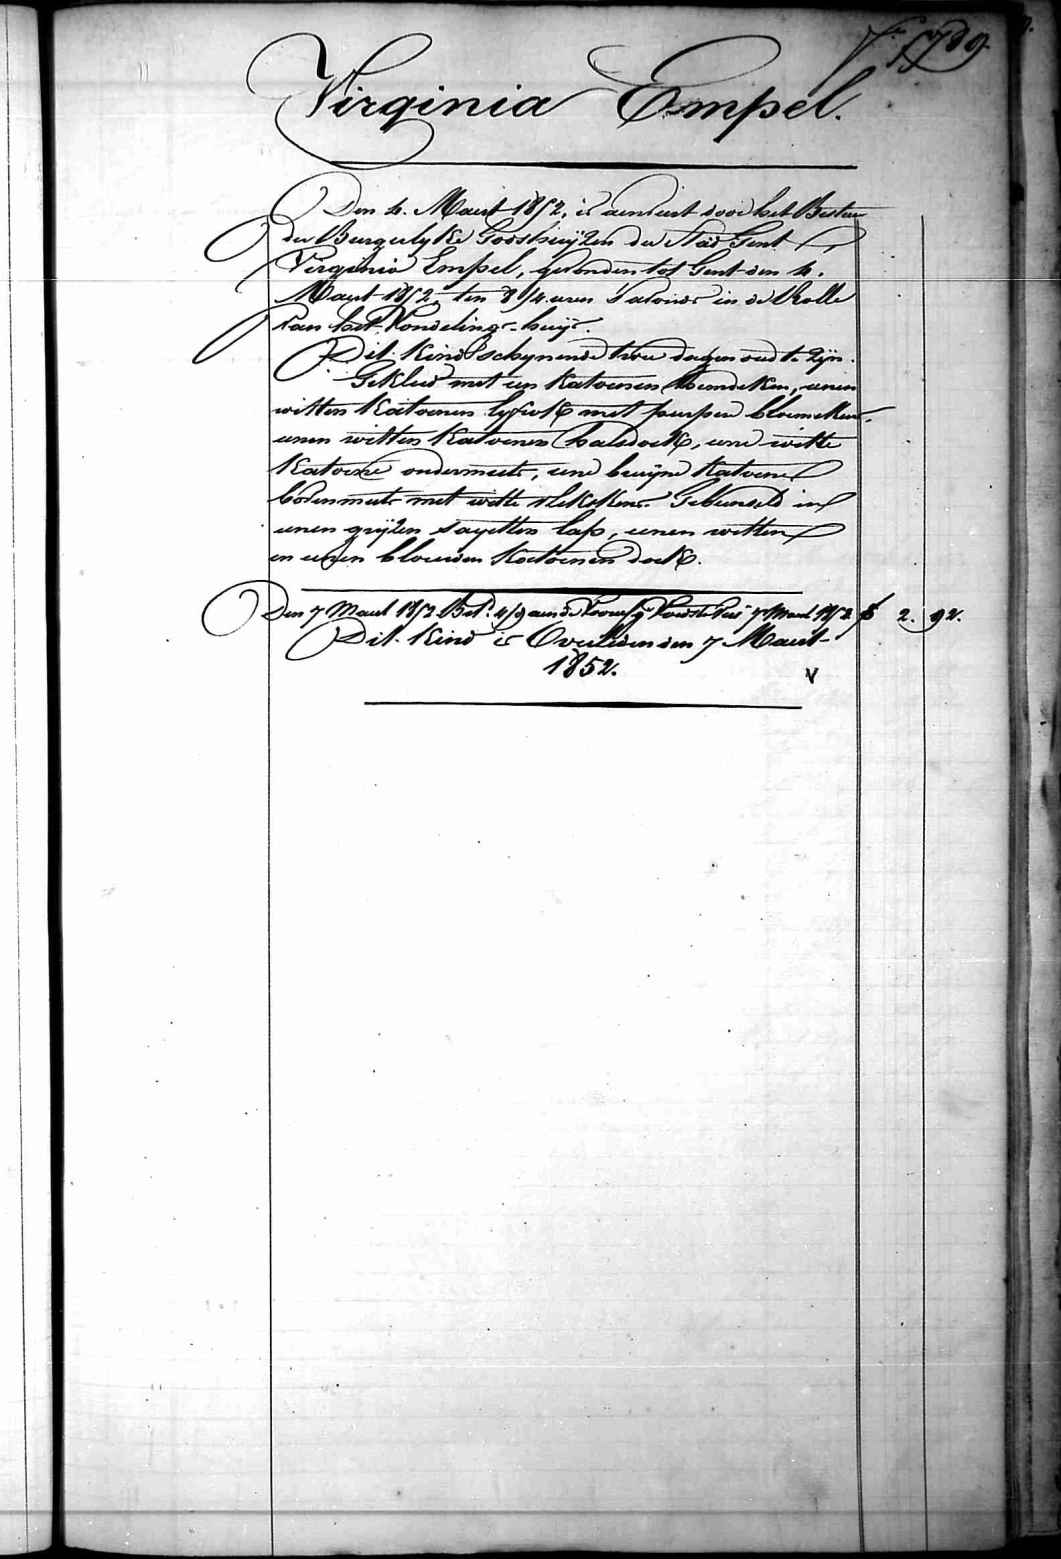 Virginia Empel.
Den 4. Maert 1852, is aenveirt door het Bestier
der Burgerlyke Godshuijzen der Stad Gent
Virginia Empel, gevonden tot Gent den 4.
Maert 1852, ten 8 1/4 uren 's avonds in de Rolle
van het Vondelings-huijs.
Dit kind schynende twee dagen oud te zijn.
Gekleed met een katoenen hemdeken, eenen
witten katoenen lyfrok met purper bloemeken,
eenen witten katoenen halsdoek, eene witte
katoene ondermuts, eene bruijne katoene
bovenmuts met witte plekskens. Gebunseld in
eenen grijzen sayetten lap, eenen witten
en eenen blauwen katoenen doek.
Den 7 Maert 1852 Bet. 4/9 aen de 7 Maert 1852 2. 92.
Dit kind is Overleden den 7 Maert
1852.